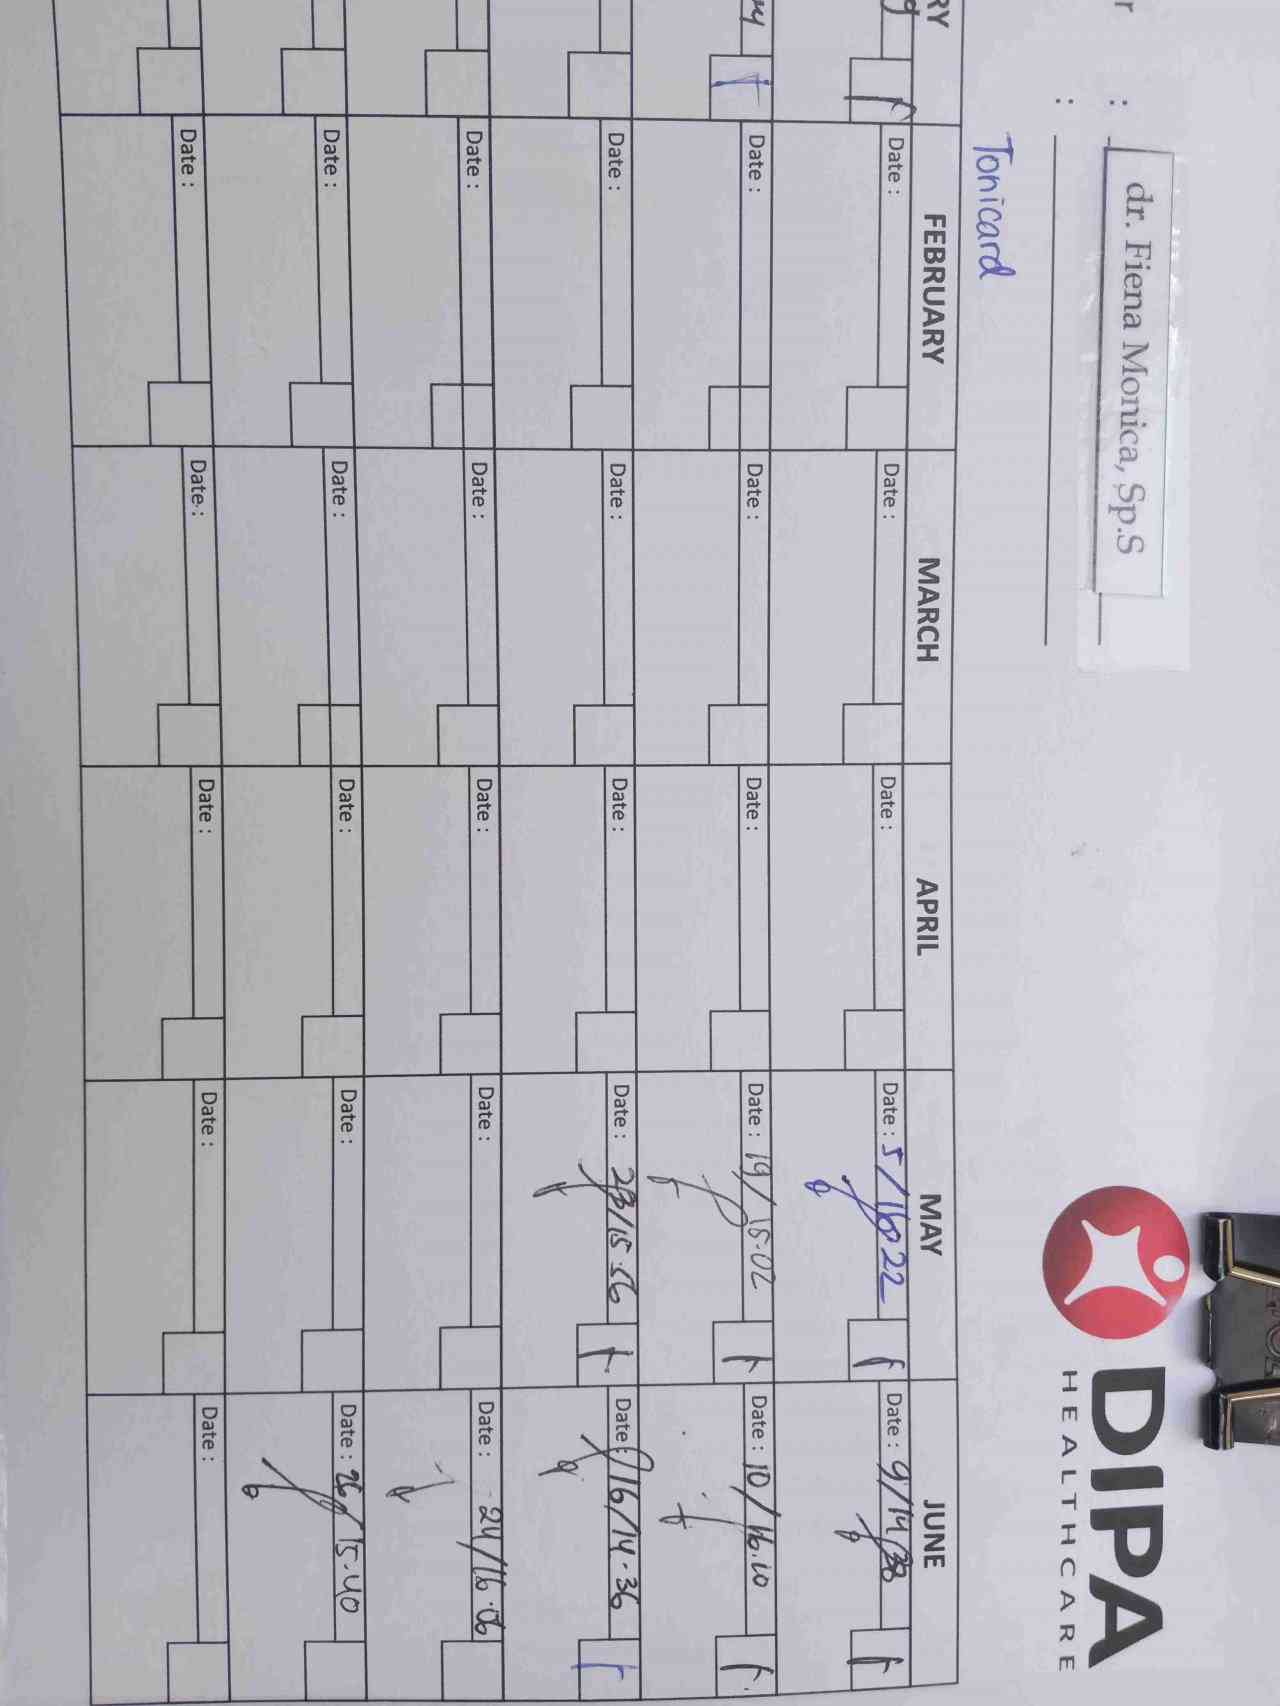 r :
dr. Fiena Monica, Sp.S
:
Tonicard
DIPA
HEALTHCARE
RY FEBRUARY MARCH APRIL MAY JUNE
Date : Date : Date : Date : 5/16 22 Date : 9/14/38
Date : Date : Date : Date : 19/15.02 Date : 10/16.10
Date : Date : Date : Date : 28/15.56 Date : 16/14.36
Date : Date : Date : Date : Date : 24/16.06
Date : Date : Date : Date : Date : 26/15.40
Date : Date : Date : Date : Date :